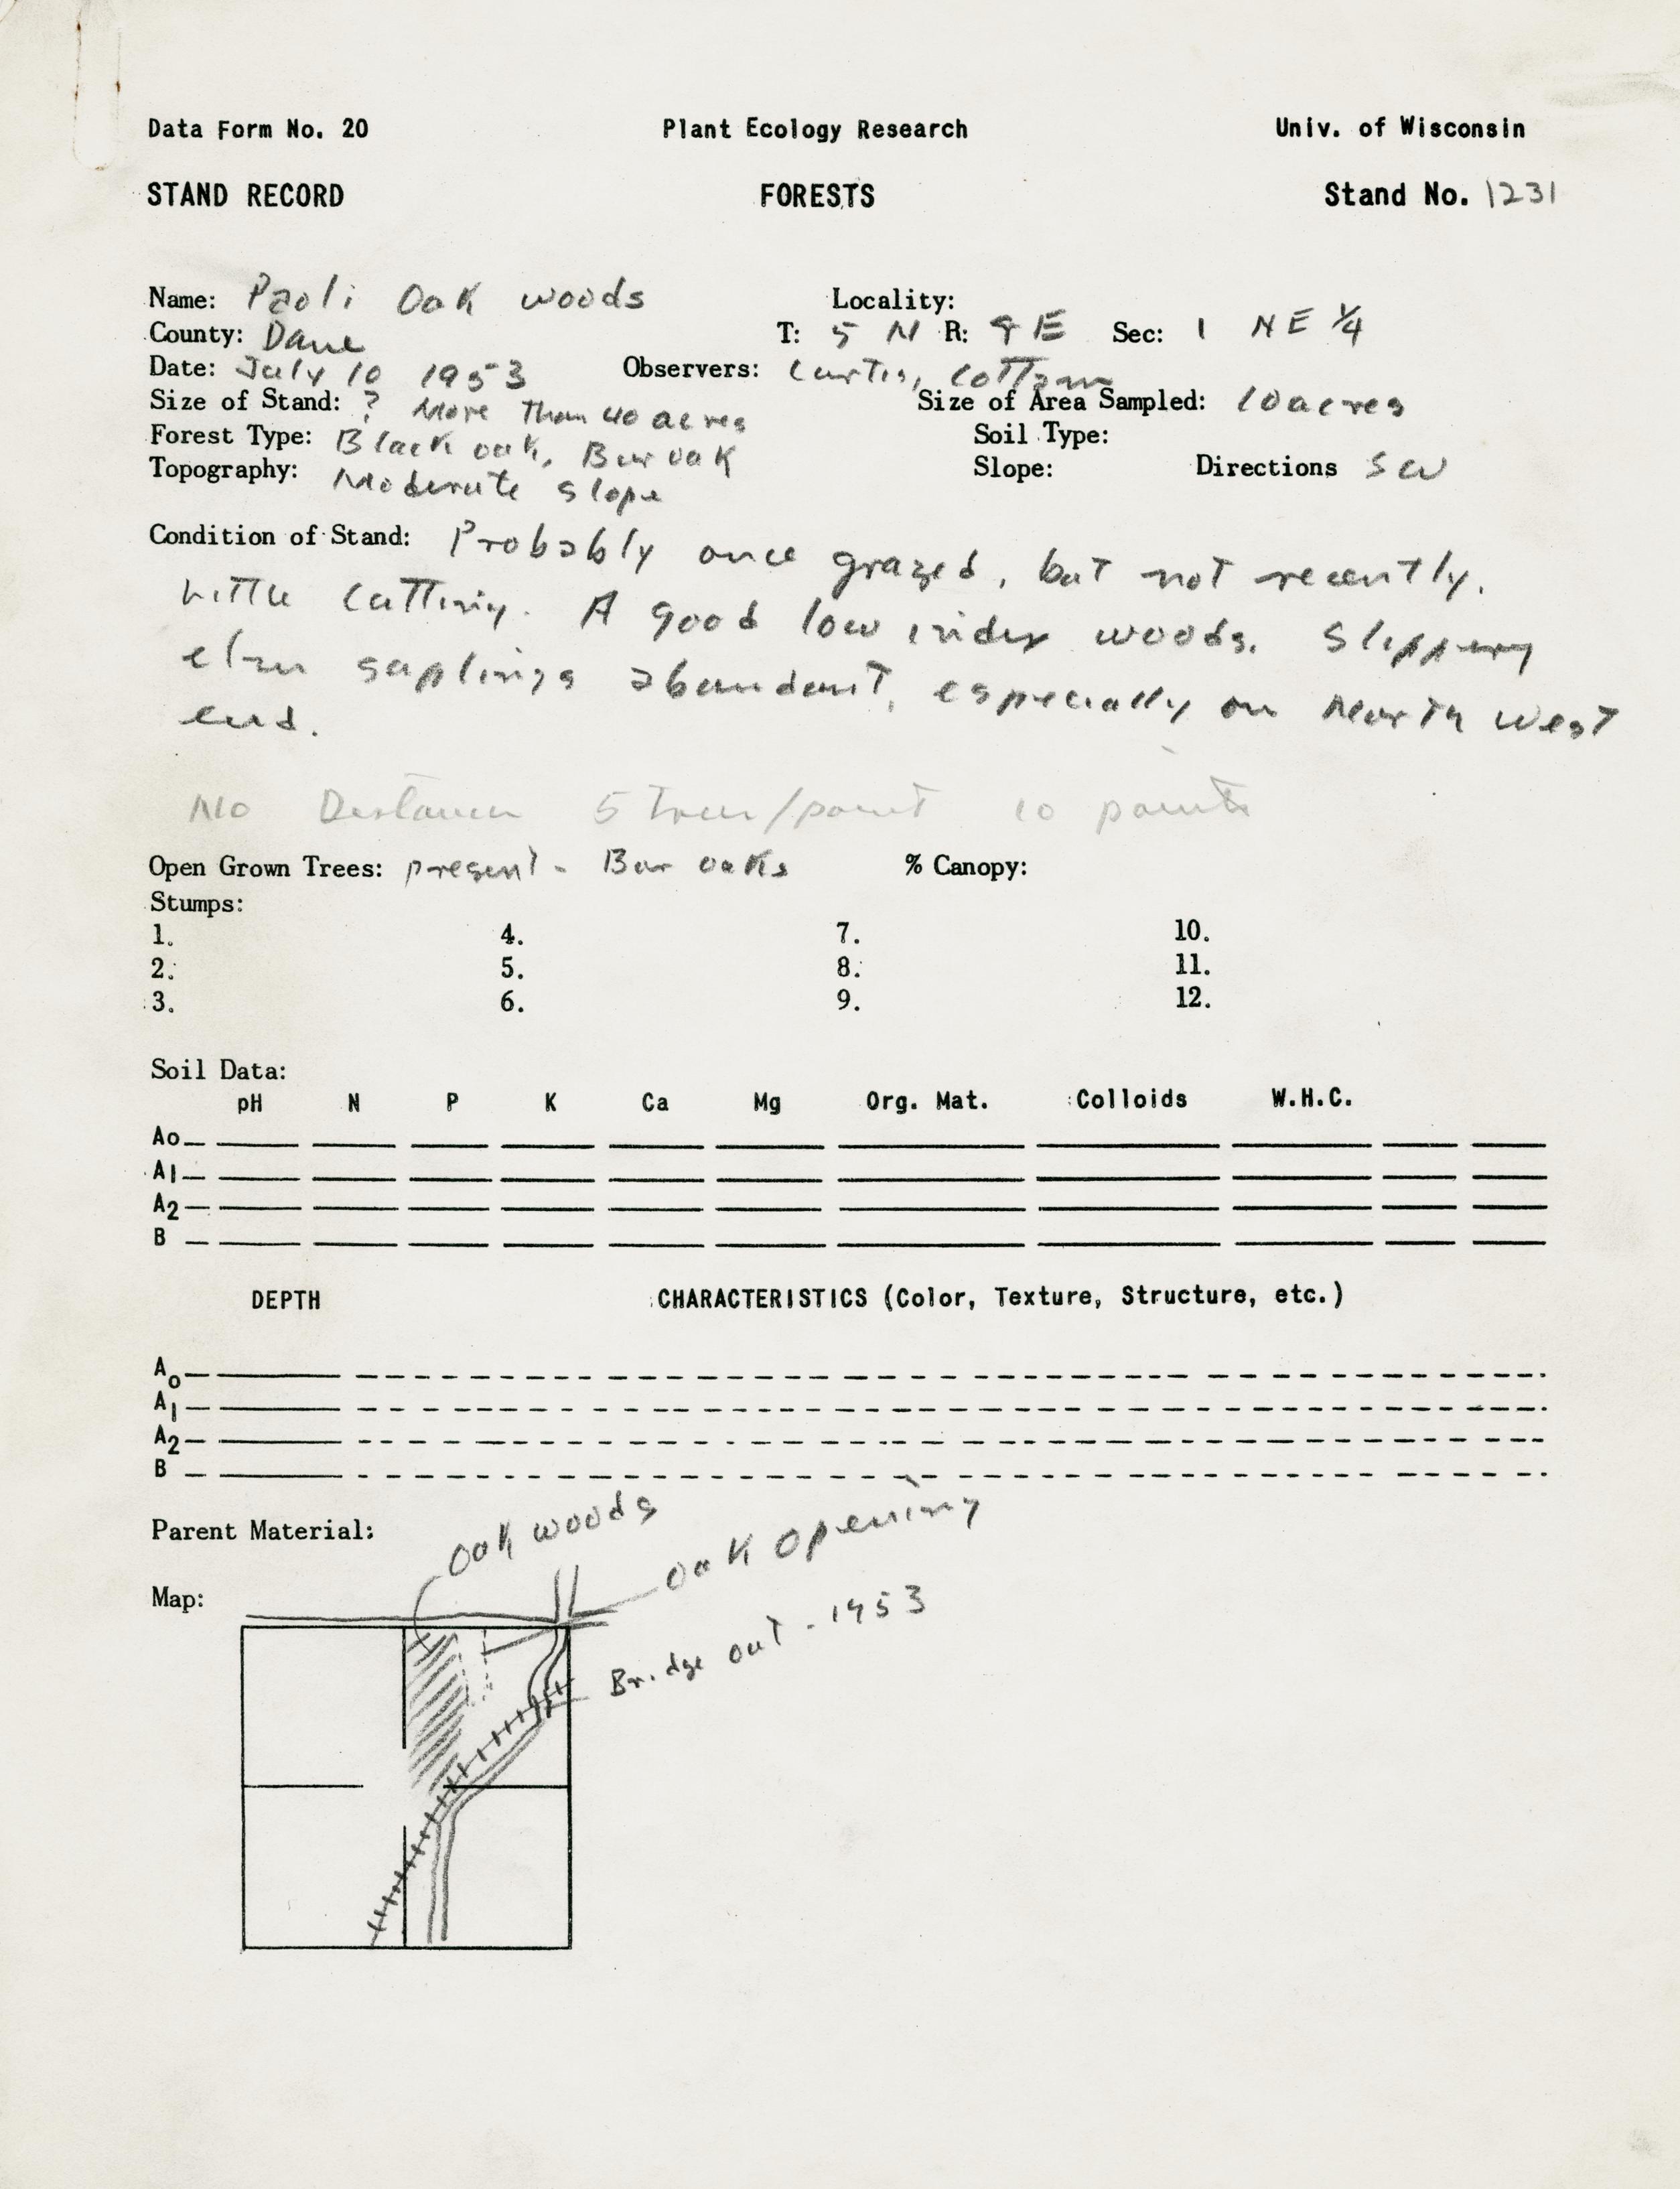 Data Form No. 20 Plant Ecology Research Univ. of Wisconsin
STAND RECORD FORESTS Stand No. 1231
Name: Paoli Oak woods Locality:
County: Dane T: 5 N R: 9 E Sec: 1 NE ¼
Date: July 10 1953 Observers: Curtis, Cottam
Size of Stand: ? More than 40 acres Size of Area Sampled: 10 acres
Forest Type: Black oak, Bur oak Soil Type:
Topography: Moderate slope Slope: Directions SW
Condition of Stand: Probably once grazed, but not recently.
Little cutting. A good low index woods. Slippery
elm saplings abundant, especially on North west
end.
No Distances 5 trees/point 10 points
Open Grown Trees: present - Bur oaks % Canopy:
Stumps:
1. 4. 7. 10.
2. 5. 8. 11.
3. 6. 9. 12.
Soil Data:
pH N P K Ca Mg Org. Mat. Colloids W.H.C.
Ao
A1
A2
B
DEPTH CHARACTERISTICS (Color, Texture, Structure, etc.)
Ao
A1
A2
B
Parent Material:
Oak woods
Oak Opening
Map:
Bridge out - 1953